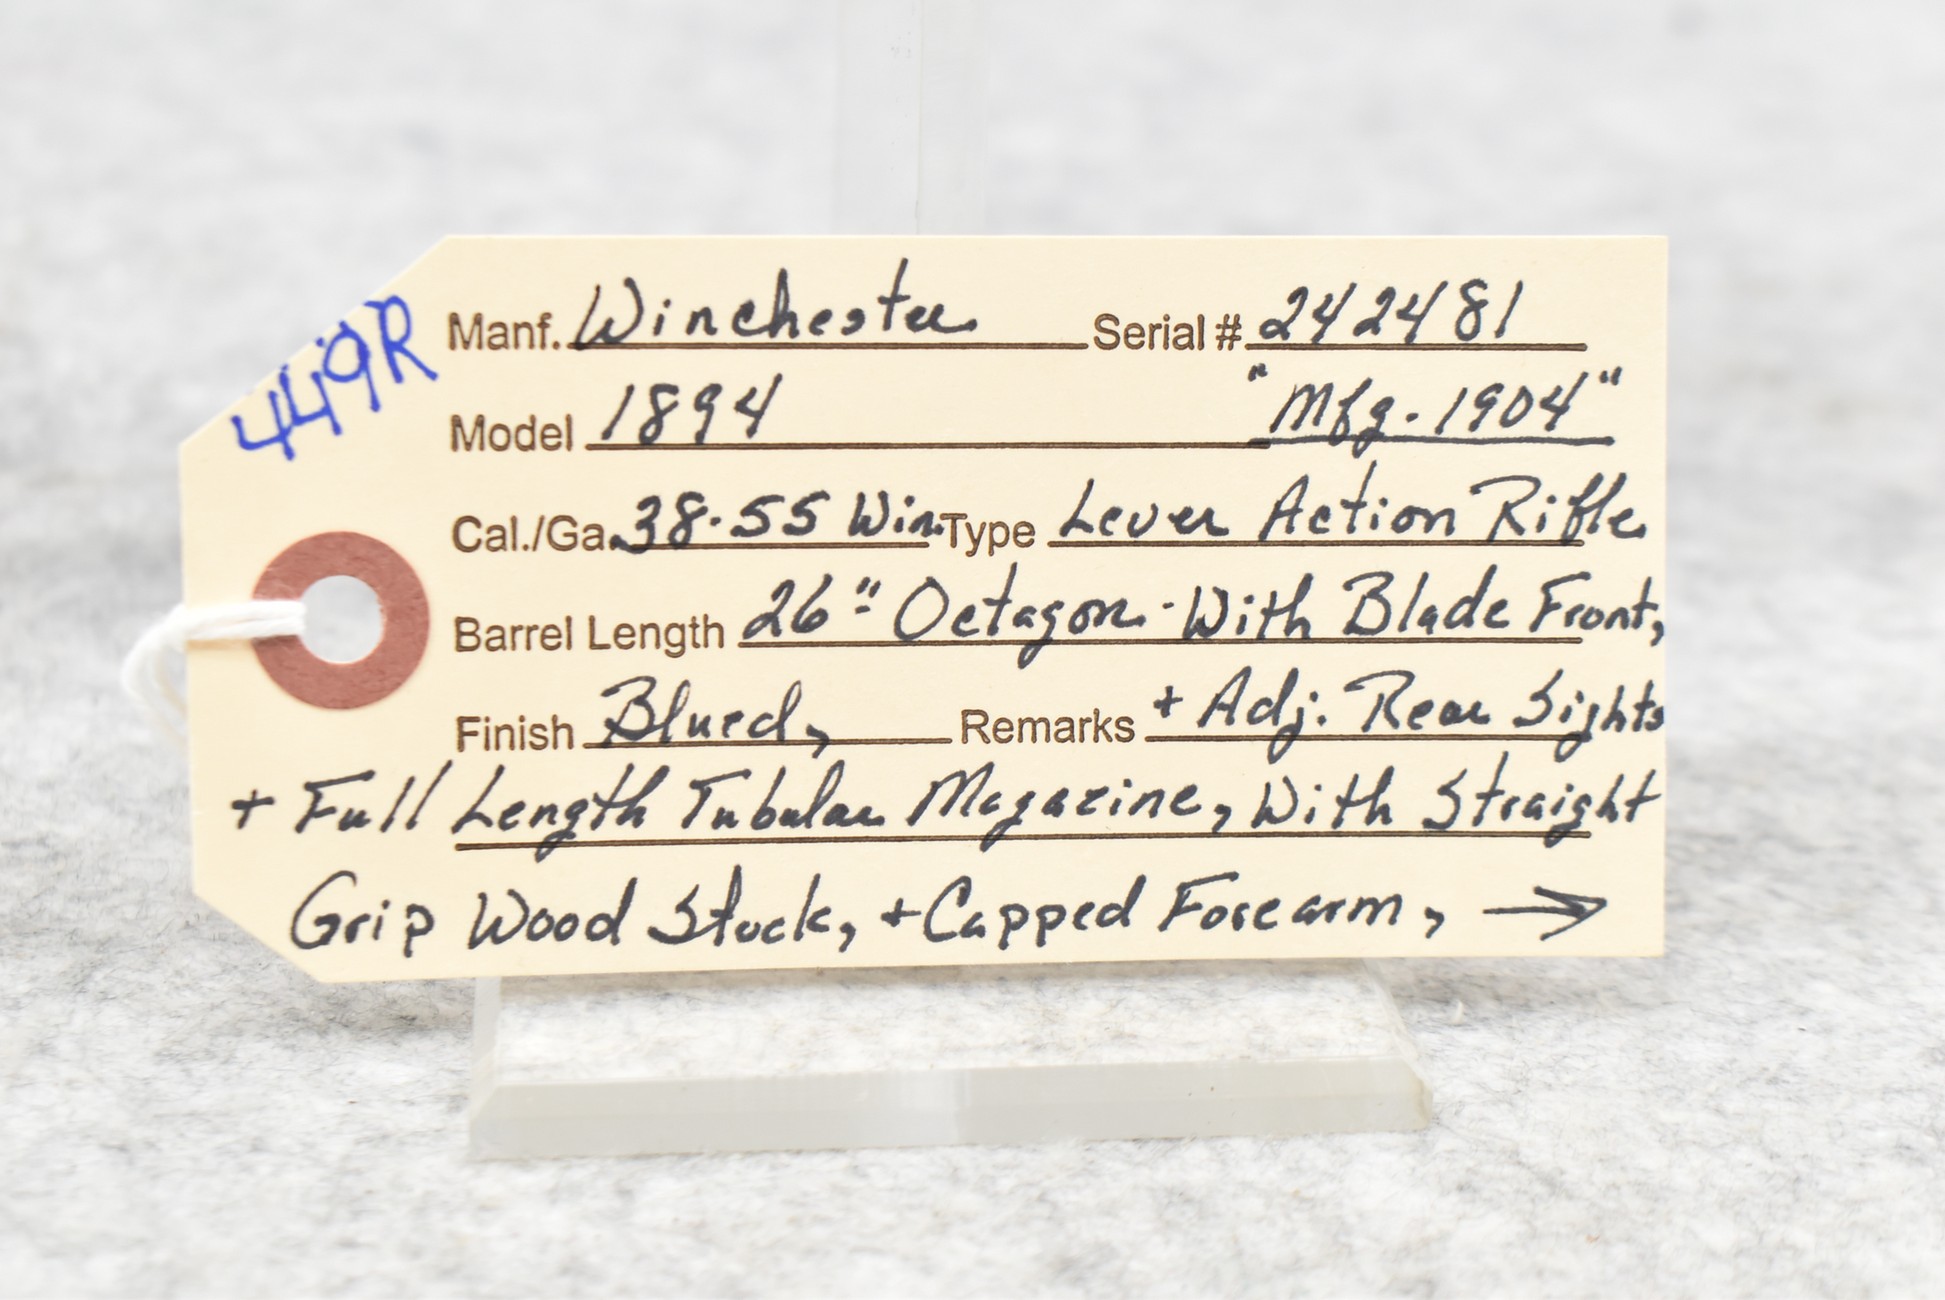 449R
Manf. Winchester Serial # 242481
Model 1894 "Mfg. 1904"
Cal./Ga. 38-55 Win. Type Lever Action Rifle
Barrel Length 26" Octagon - With Blade Front,
Finish Blued, Remarks + Adj. Rear Sights
+ Full Length Tubular Magazine, With Straight
Grip Wood Stock, + Capped Forearm, →